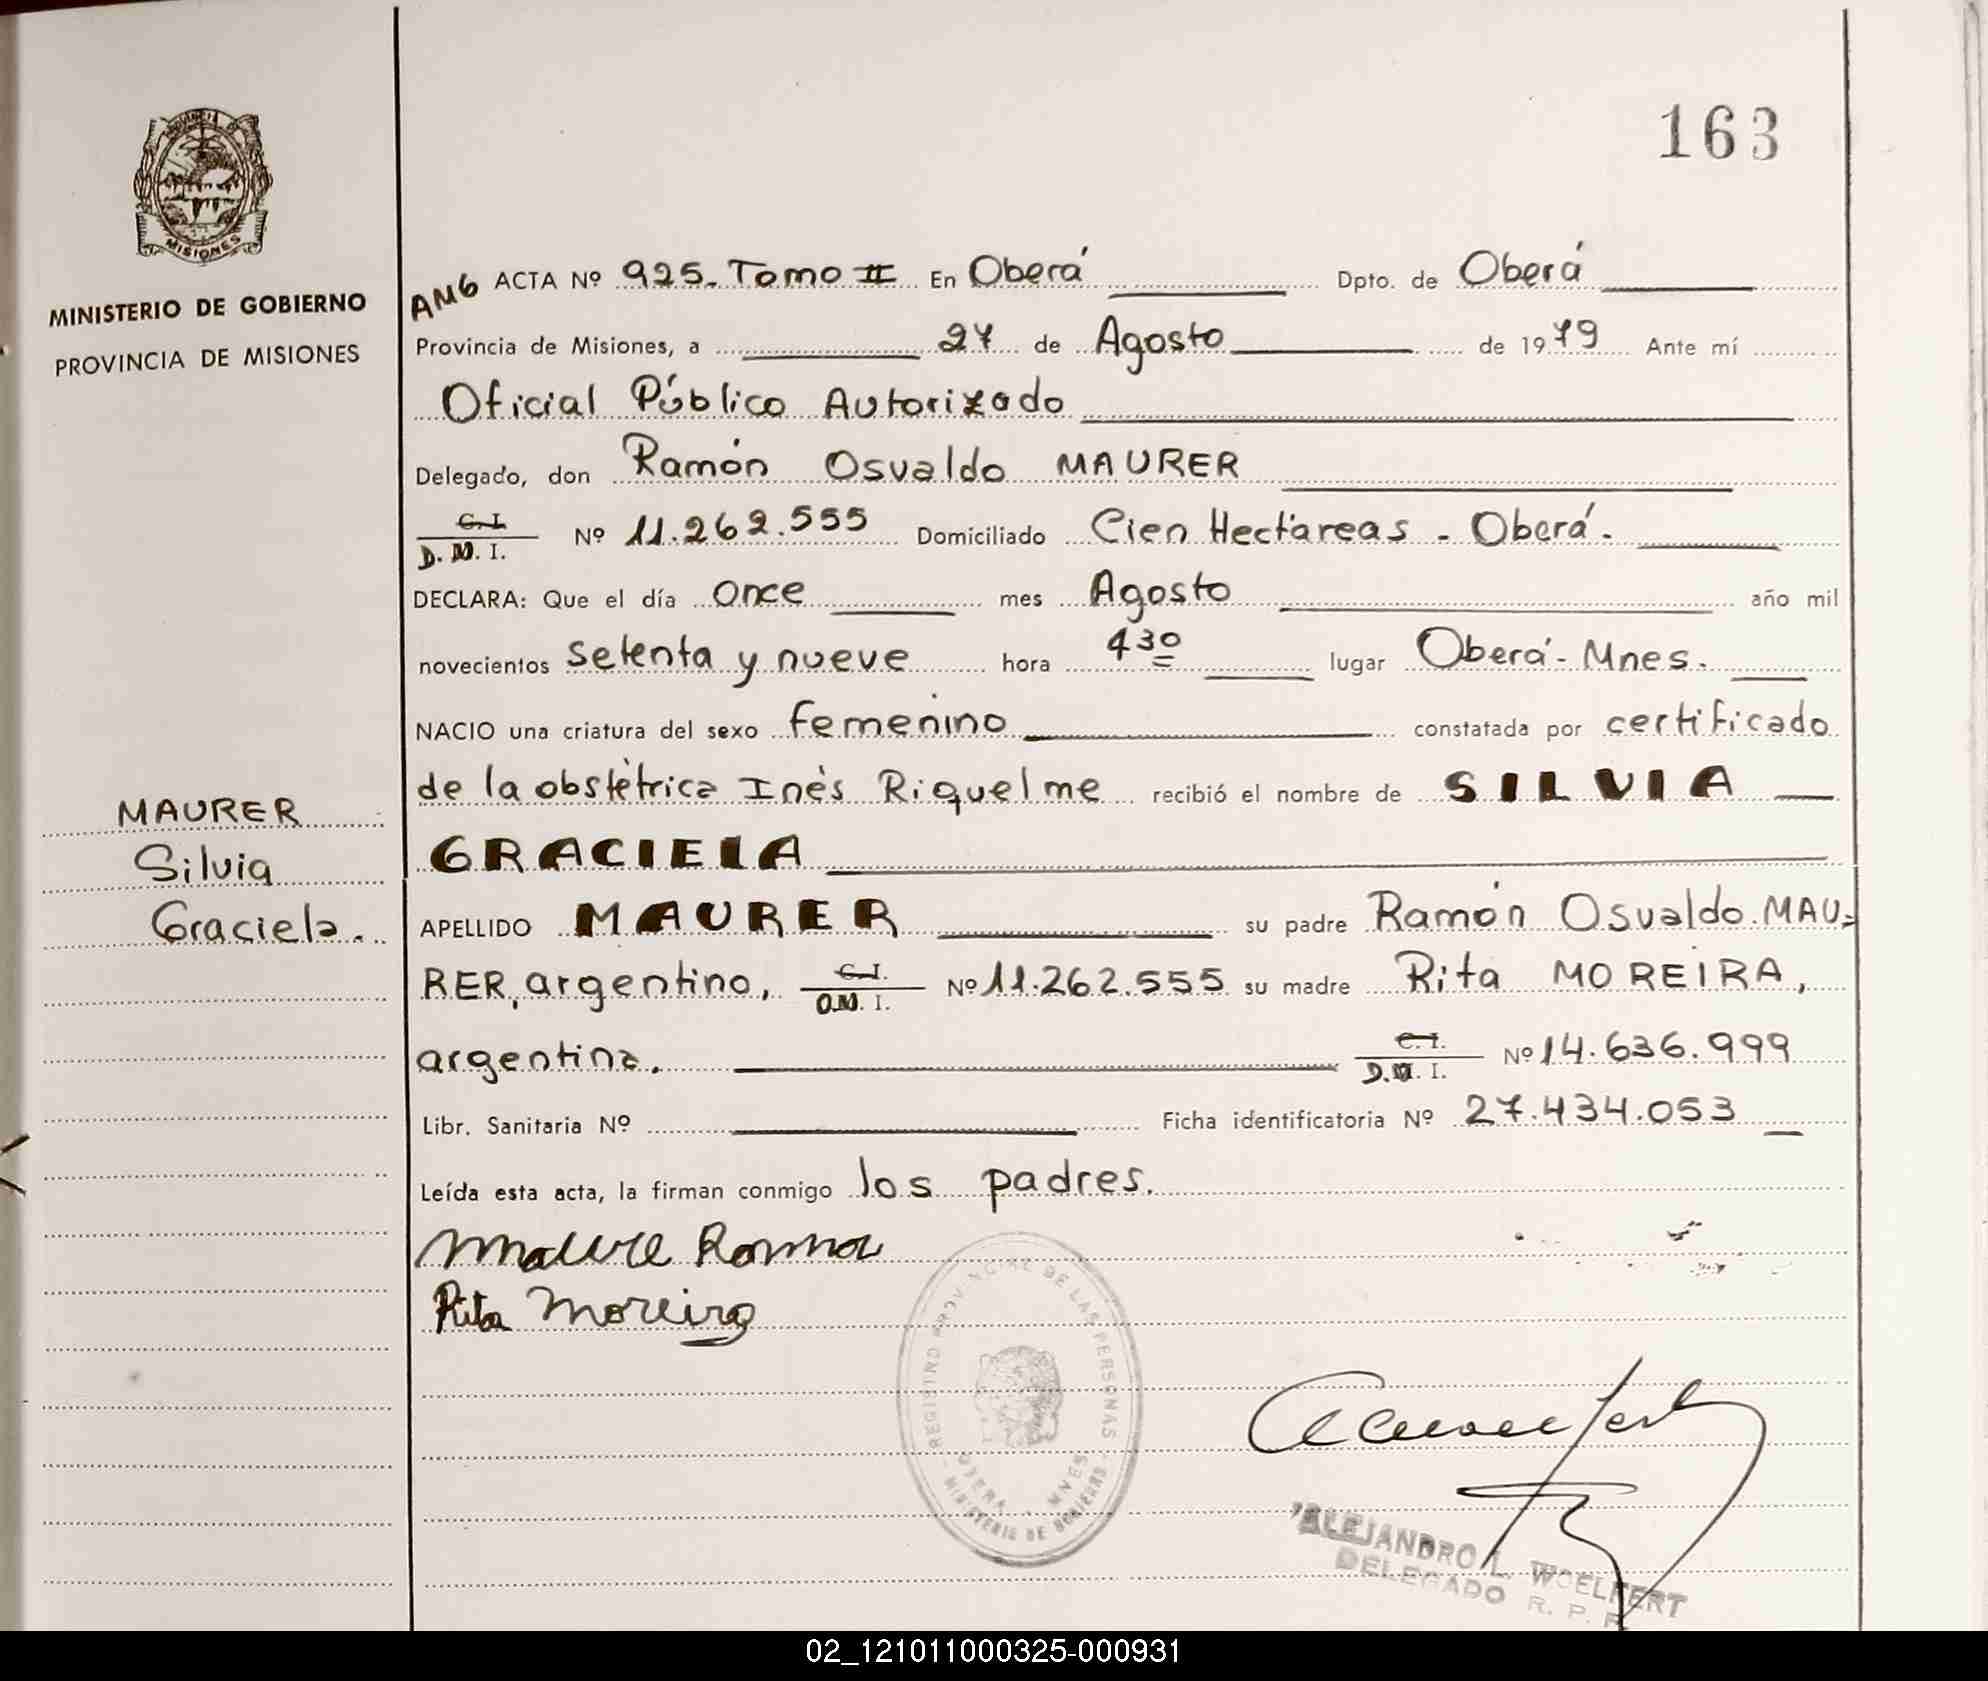 163
PROVINCIA DE
MISIONES
MINISTERIO DE GOBIERNO
PROVINCIA DE MISIONES
AMG ACTA Nº 925. Tomo II En Oberá Dpto. de Oberá
Provincia de Misiones, a 27 de Agosto de 1979 Ante mí
Oficial Público Autorizado
Delegado, don Ramón Osvaldo MAURER
C. I.
D. N. I. Nº 11.262.555 Domiciliado Cien Hectáreas - Oberá.
DECLARA: Que el día once mes Agosto año mil
novecientos setenta y nueve hora 4 30 lugar Oberá - Mnes.
NACIO una criatura del sexo femenino constatada por certificado
de la obstétrica Inés Riquelme recibió el nombre de SILVIA
GRACIELA
MAURER
Silvia
Graciela.
APELLIDO MAURER su padre Ramón Osvaldo MAU=
RER, argentino, C. I. D.N. I. Nº 11.262.555 su madre Rita MOREIRA,
argentina. C. I. D.N. I. Nº 14.636.999
Libr. Sanitaria Nº Ficha identificatoria Nº 27.434.053
Leída esta acta, la firman conmigo los padres.
Rita Moreira
REGISTRO PROVINCIAL DE LAS PERSONAS
OBERA - MNES
MINISTERIO DE GOBIERNO
ALEJANDRO L. WOELFERT
DELEGADO R. P. P.
02_121011000325-000931